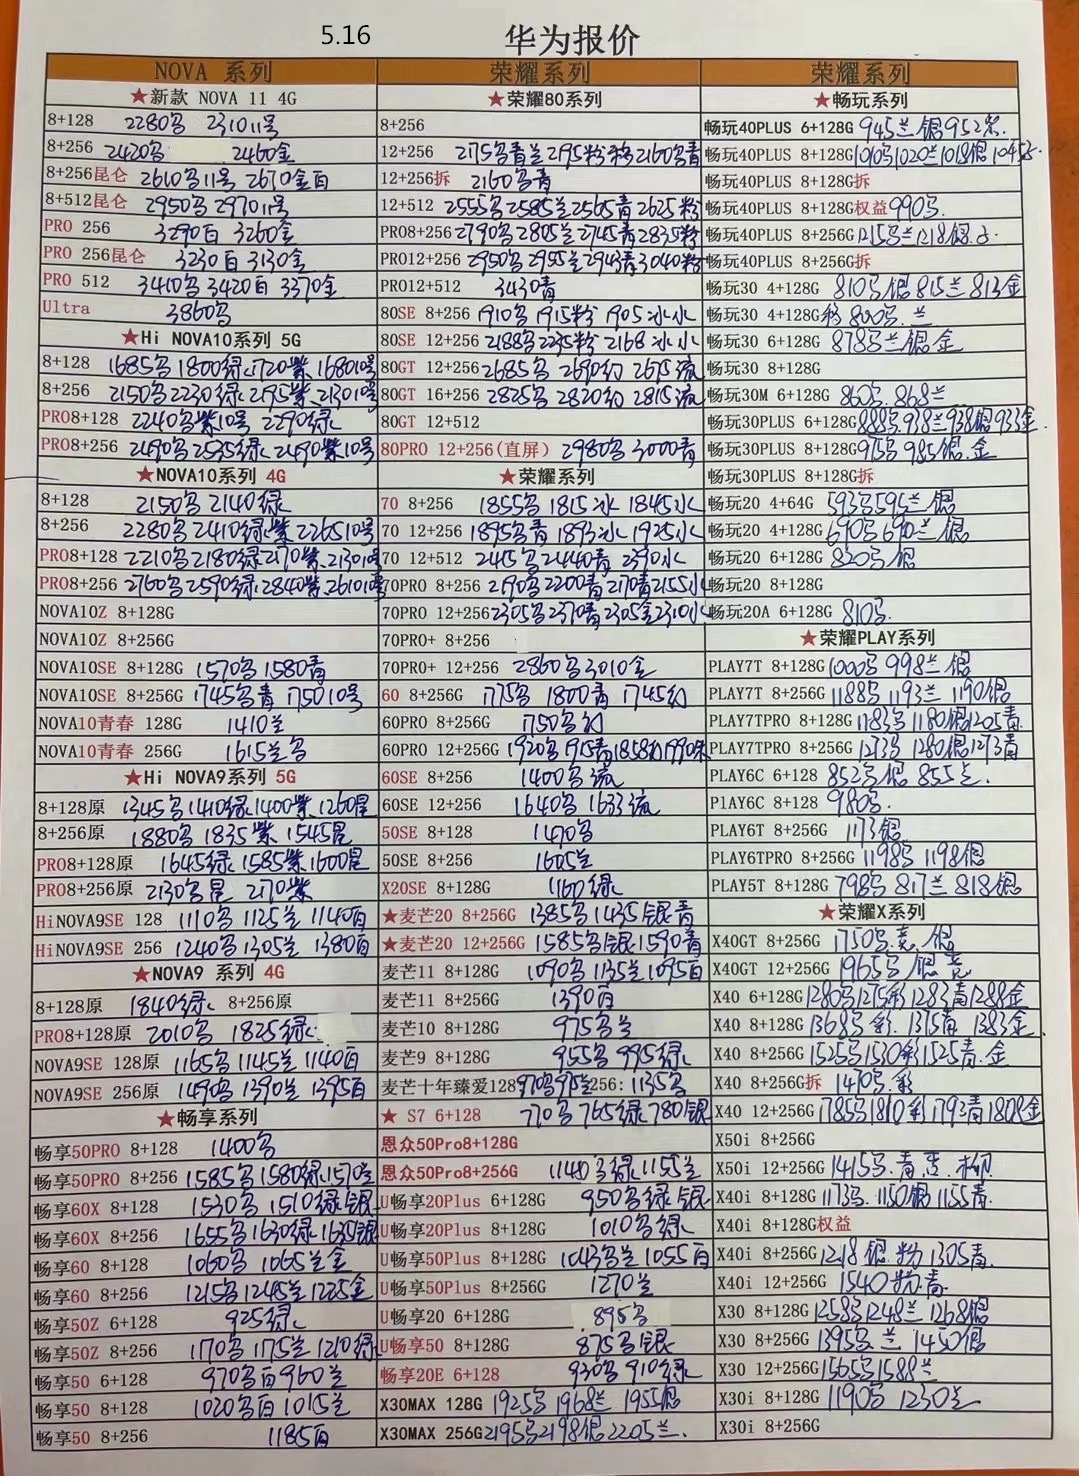 5.16
华为报价
NOVA 系列
★新款 NOVA 11 4G
8+128 2280鸟 2310 11号
8+256 2420鸟 2460金
8+256昆仑 2610鸟11号 2670金百
8+512昆仑 2950鸟 2970 11号
PRO 256 3290百 3260金
PRO 256昆仑 3230百 3130金
PRO 512 3410鸟 3420百 3370金
Ultra 3860鸟
★Hi NOVA10系列 5G
8+128 1685鸟 1800绿 1720紫 1680 10号
8+256 2150鸟 2230绿 2195紫 2130 10号
PRO8+128 2240鸟紫10号 2290绿
PRO8+256 2490鸟 2535绿 2490紫10号
★NOVA10系列 4G
8+128 2150鸟 2140绿
8+256 2280鸟 2410绿紫 2265 10号
PRO8+128 2210鸟 2180绿 2170紫 2130 10号
PRO8+256 2760鸟 2590绿 2840紫 2610 10号
NOVA10Z 8+128G
NOVA10Z 8+256G
NOVA10SE 8+128G 1570鸟 1580青
NOVA10SE 8+256G 1745鸟青 1750 10号
NOVA10青春 128G 1410兰
NOVA10青春 256G 1615兰鸟
★Hi NOVA9系列 5G
8+128原 1345鸟 1410绿 1400紫 1260昆
8+256原 1880鸟 1835紫 1545昆
PRO8+128原 1645绿 1585紫 1600昆
PRO8+256原 2130鸟昆 2170紫
HiNOVA9SE 128 1110鸟 1125兰 1140百
HiNOVA9SE 256 1240鸟 1305兰 1380百
★NOVA9 系列 4G
8+128原 1840绿 8+256原
PRO8+128原 2010鸟 1825绿
NOVA9SE 128原 1165鸟 1145兰 1140百
NOVA9SE 256原 1490鸟 1390兰 1395百
★畅享系列
畅享50PRO 8+128 1400鸟
畅享50PRO 8+256 1585鸟 1580绿 1570兰
畅享60X 8+128 1530鸟 1510绿银
畅享60X 8+256 1655鸟 1630绿 1635银
畅享60 8+128 1060鸟 1065兰金
畅享60 8+256 1215鸟 1245兰 1225金
畅享50Z 6+128 925绿
畅享50Z 8+256 1170鸟 1175兰 1210绿
畅享50 6+128 970鸟百 960兰
畅享50 8+128 1020鸟百 1015兰
畅享50 8+256 1185百
荣耀系列
★荣耀80系列
8+256
12+256 2175鸟青兰 2195粉 2160鸟青
12+256拆 2160鸟青
12+512 2555鸟 2585兰 2565青 2625粉
PRO8+256 2790鸟 2805兰 2745青 2835粉
PRO12+256 2950鸟 2955兰 2943青 3040粉
PRO12+512 3430青
80SE 8+256 1910鸟 1915粉 1905冰水
80SE 12+256 2188鸟 2235粉 2168冰水
80GT 12+256 2685鸟 2690幻 2675流
80GT 16+256 2825鸟 2820幻 2815流
80GT 12+512
80PRO 12+256(直屏) 2980鸟 3000青
★荣耀系列
70 8+256 1855鸟 1815冰 1845水
70 12+256 1895鸟青 1893冰 1925水
70 12+512 2415鸟 2440青 2390水
70PRO 8+256 2190鸟 2200青 2170青 2155水
70PRO 12+256 2305鸟 2370青 2305金 2310水
70PRO+ 8+256
70PRO+ 12+256 2860鸟 3010金
60 8+256G 1775鸟 1800青 1745幻
60PRO 8+256G 1750鸟幻
60PRO 12+256G 1920鸟 1915青 1858幻 1990
60SE 8+256 1400鸟流
60SE 12+256 1640鸟 1633流
50SE 8+128 1490鸟
50SE 8+256 1605兰
X20SE 8+128G 1160绿
★麦芒20 8+256G 1385鸟 1435银青
★麦芒20 12+256G 1585鸟银 1590青
麦芒11 8+128G 1090鸟 1135兰 1095百
麦芒11 8+256G 1390百
麦芒10 8+128G 975鸟兰
麦芒9 8+128G 955鸟 995绿
麦芒十年臻爱128 970鸟 975兰 256: 1135鸟
★ S7 6+128 770鸟 765绿 780银
恩众50Pro8+128G
恩众50Pro8+256G 1140鸟绿 1155兰
U畅享20Plus 6+128G 950鸟绿银
U畅享20Plus 8+128G 1010鸟绿
U畅享50Plus 8+128G 1043鸟兰 1055百
U畅享50Plus 8+256G 1270兰
U畅享20 6+128G 895鸟
U畅享50 8+128G 875鸟银
畅享20E 6+128 930鸟 910绿
X30MAX 128G 1925鸟 1968兰 1955银
X30MAX 256G 2195鸟 2198银 2205兰
荣耀系列
★畅玩系列
畅玩40PLUS 6+128G 945兰银 952
畅玩40PLUS 8+128G 1010鸟 1020兰 1018银 1045
畅玩40PLUS 8+128G拆
畅玩40PLUS 8+128G权益 990鸟
畅玩40PLUS 8+256G 1215鸟兰 1218银
畅玩40PLUS 8+256G拆
畅玩30 4+128G 810鸟银 815兰 813金
畅玩30 4+128G 800鸟.兰
畅玩30 6+128G 878鸟兰银金
畅玩30 8+128G
畅玩30M 6+128G 860鸟.868兰
畅玩30PLUS 6+128G 888鸟 938兰 938银 933金
畅玩30PLUS 8+128G 975鸟 985银.金
畅玩30PLUS 8+128G拆
畅玩20 4+64G 593鸟 595兰银
畅玩20 4+128G 690鸟 690兰银
畅玩20 6+128G 820鸟银
畅玩20 8+128G
畅玩20A 6+128G 810鸟
★荣耀PLAY系列
PLAY7T 8+128G 1000鸟 998兰银
PLAY7T 8+256G 1188鸟 1193兰 1190银
PLAY7TPRO 8+128G 1183鸟 1180银 1205青
PLAY7TPRO 8+256G 1273鸟 1280银 1273青
PLAY6C 6+128 852鸟银 855兰
PlAY6C 8+128 980鸟
PLAY6T 8+256G 1173银
PLAY6TPRO 8+256G 1198鸟 1198银
PLAY5T 8+128G 798鸟 817兰 818银
★荣耀X系列
X40GT 8+256G 1750鸟.竞.银
X40GT 12+256G 1965鸟 银竞
X40 6+128G 1280鸟 1275彩 1283青 1288金
X40 8+128G 1368鸟彩.1375青 1383金
X40 8+256G 1525鸟 1530彩 1525青.金
X40 8+256G拆 1470鸟.彩
X40 12+256G 1785鸟 1810彩 1793青 1808金
X50i 8+256G
X50i 12+256G 1415鸟.青 柳
X40i 8+128G 1173鸟.1150银 1155青
X40i 8+128G权益
X40i 8+256G 1218银.粉 1305青
X40i 12+256G 1540 青
X30 8+128G 1258鸟 1248兰 1268银
X30 8+256G 1395鸟.兰 1450银
X30 12+256G 1565鸟 1588兰
X30i 8+128G 1190鸟 1230兰
X30i 8+256G